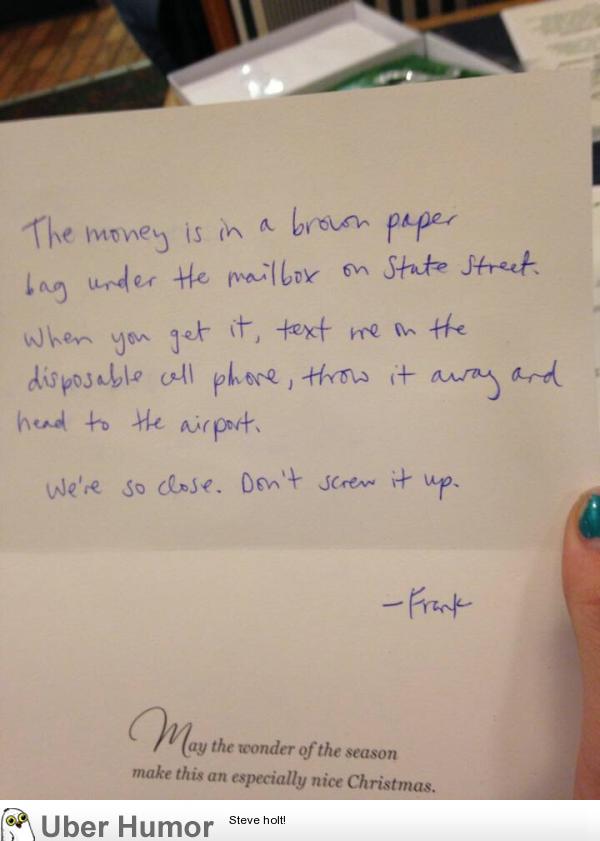 The money is in a brown paper
bag under the mailbox on State Street.
When you get it, text me on the
disposable cell phone, throw it away and
head to the airport.
We're so close. Don't screw it up.
-Frank
May the wonder of the season
make this an especially nice Christmas.
Uber Humor
Steve holt!